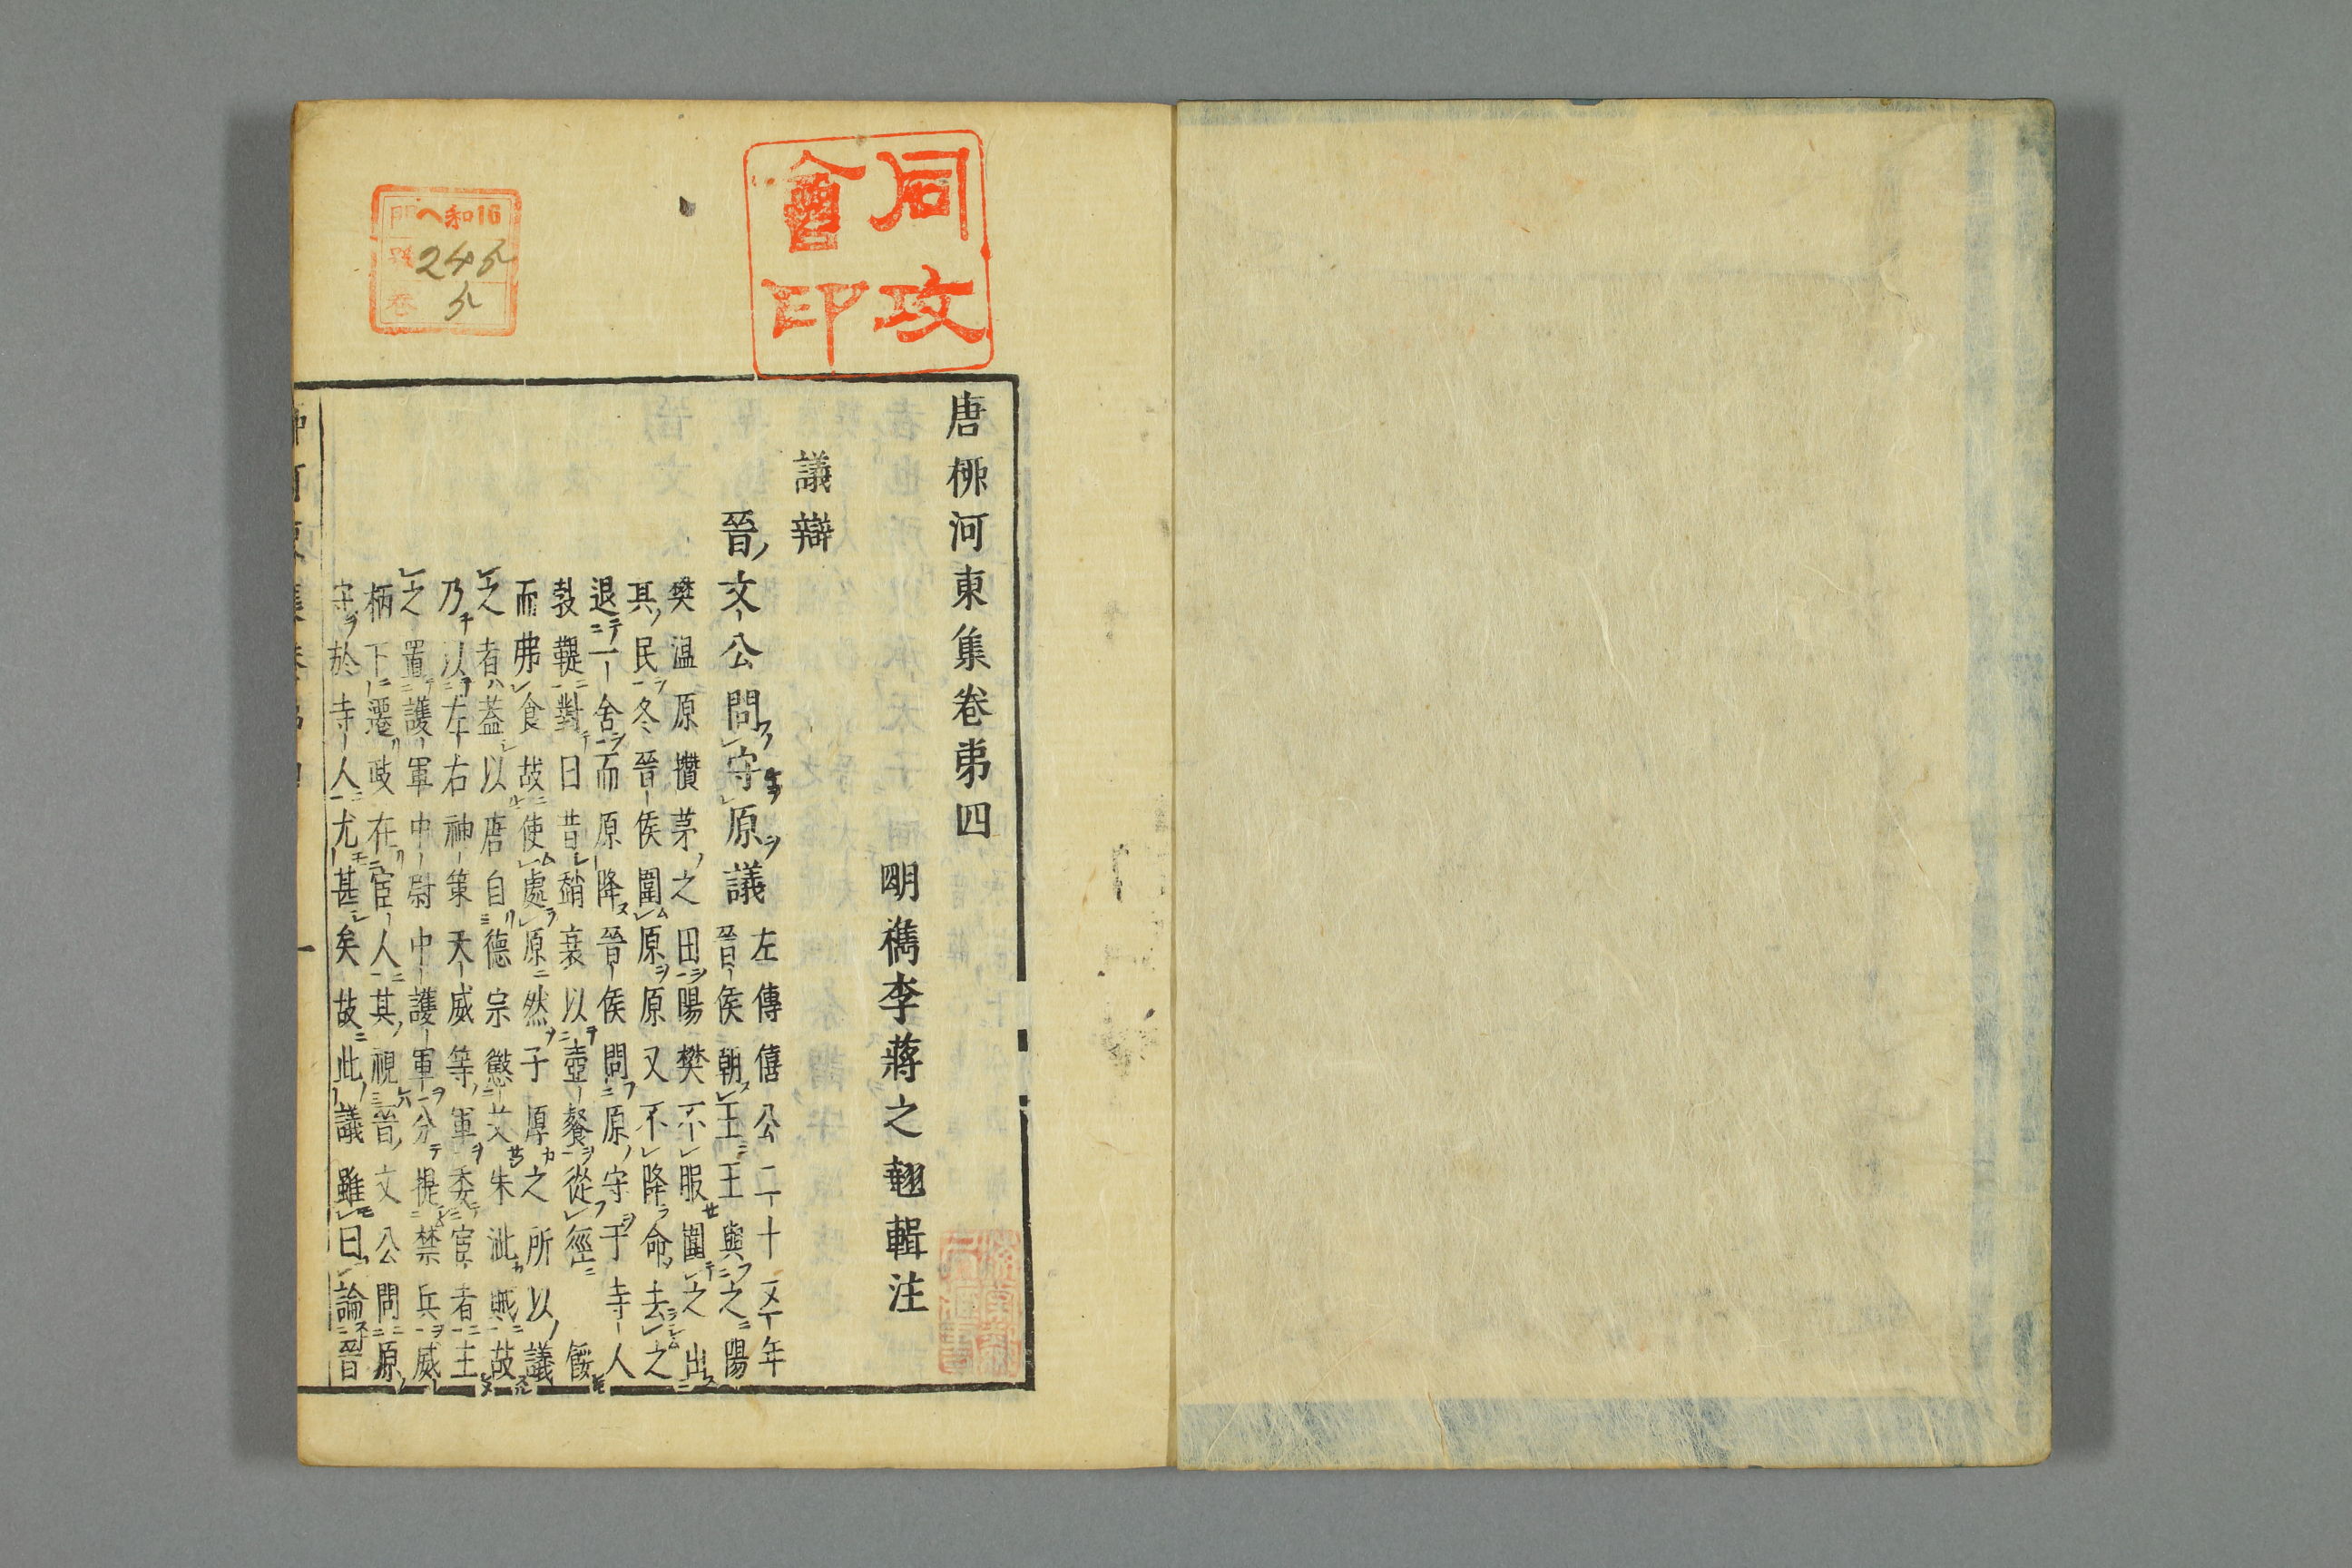 唐栁河東集卷第四
明檇李蔣之翹輯注
議辯
晉文公問守原議
左傳僖公二十五年
晉侯朝王王與之陽
樊温原攅茅之田陽樊不服圍之出
其民冬晉侯圍原原又不降命去之
退一舍而原降晉侯問原守于寺人
㪍鞮對曰昔趙衰以壺餐從徑餒
而弗食故使處原然子厚之所以議
之者葢以唐自德宗懲艾朱泚賊故
乃以左右神策天威等軍委宦者主
之置護軍中尉中護軍分提禁兵威
柄下遷政在宦人其視晉文公問原
守於寺人尤甚矣故此議雖曰論晉
同攻
會印
和16
門
號 245
卷 5